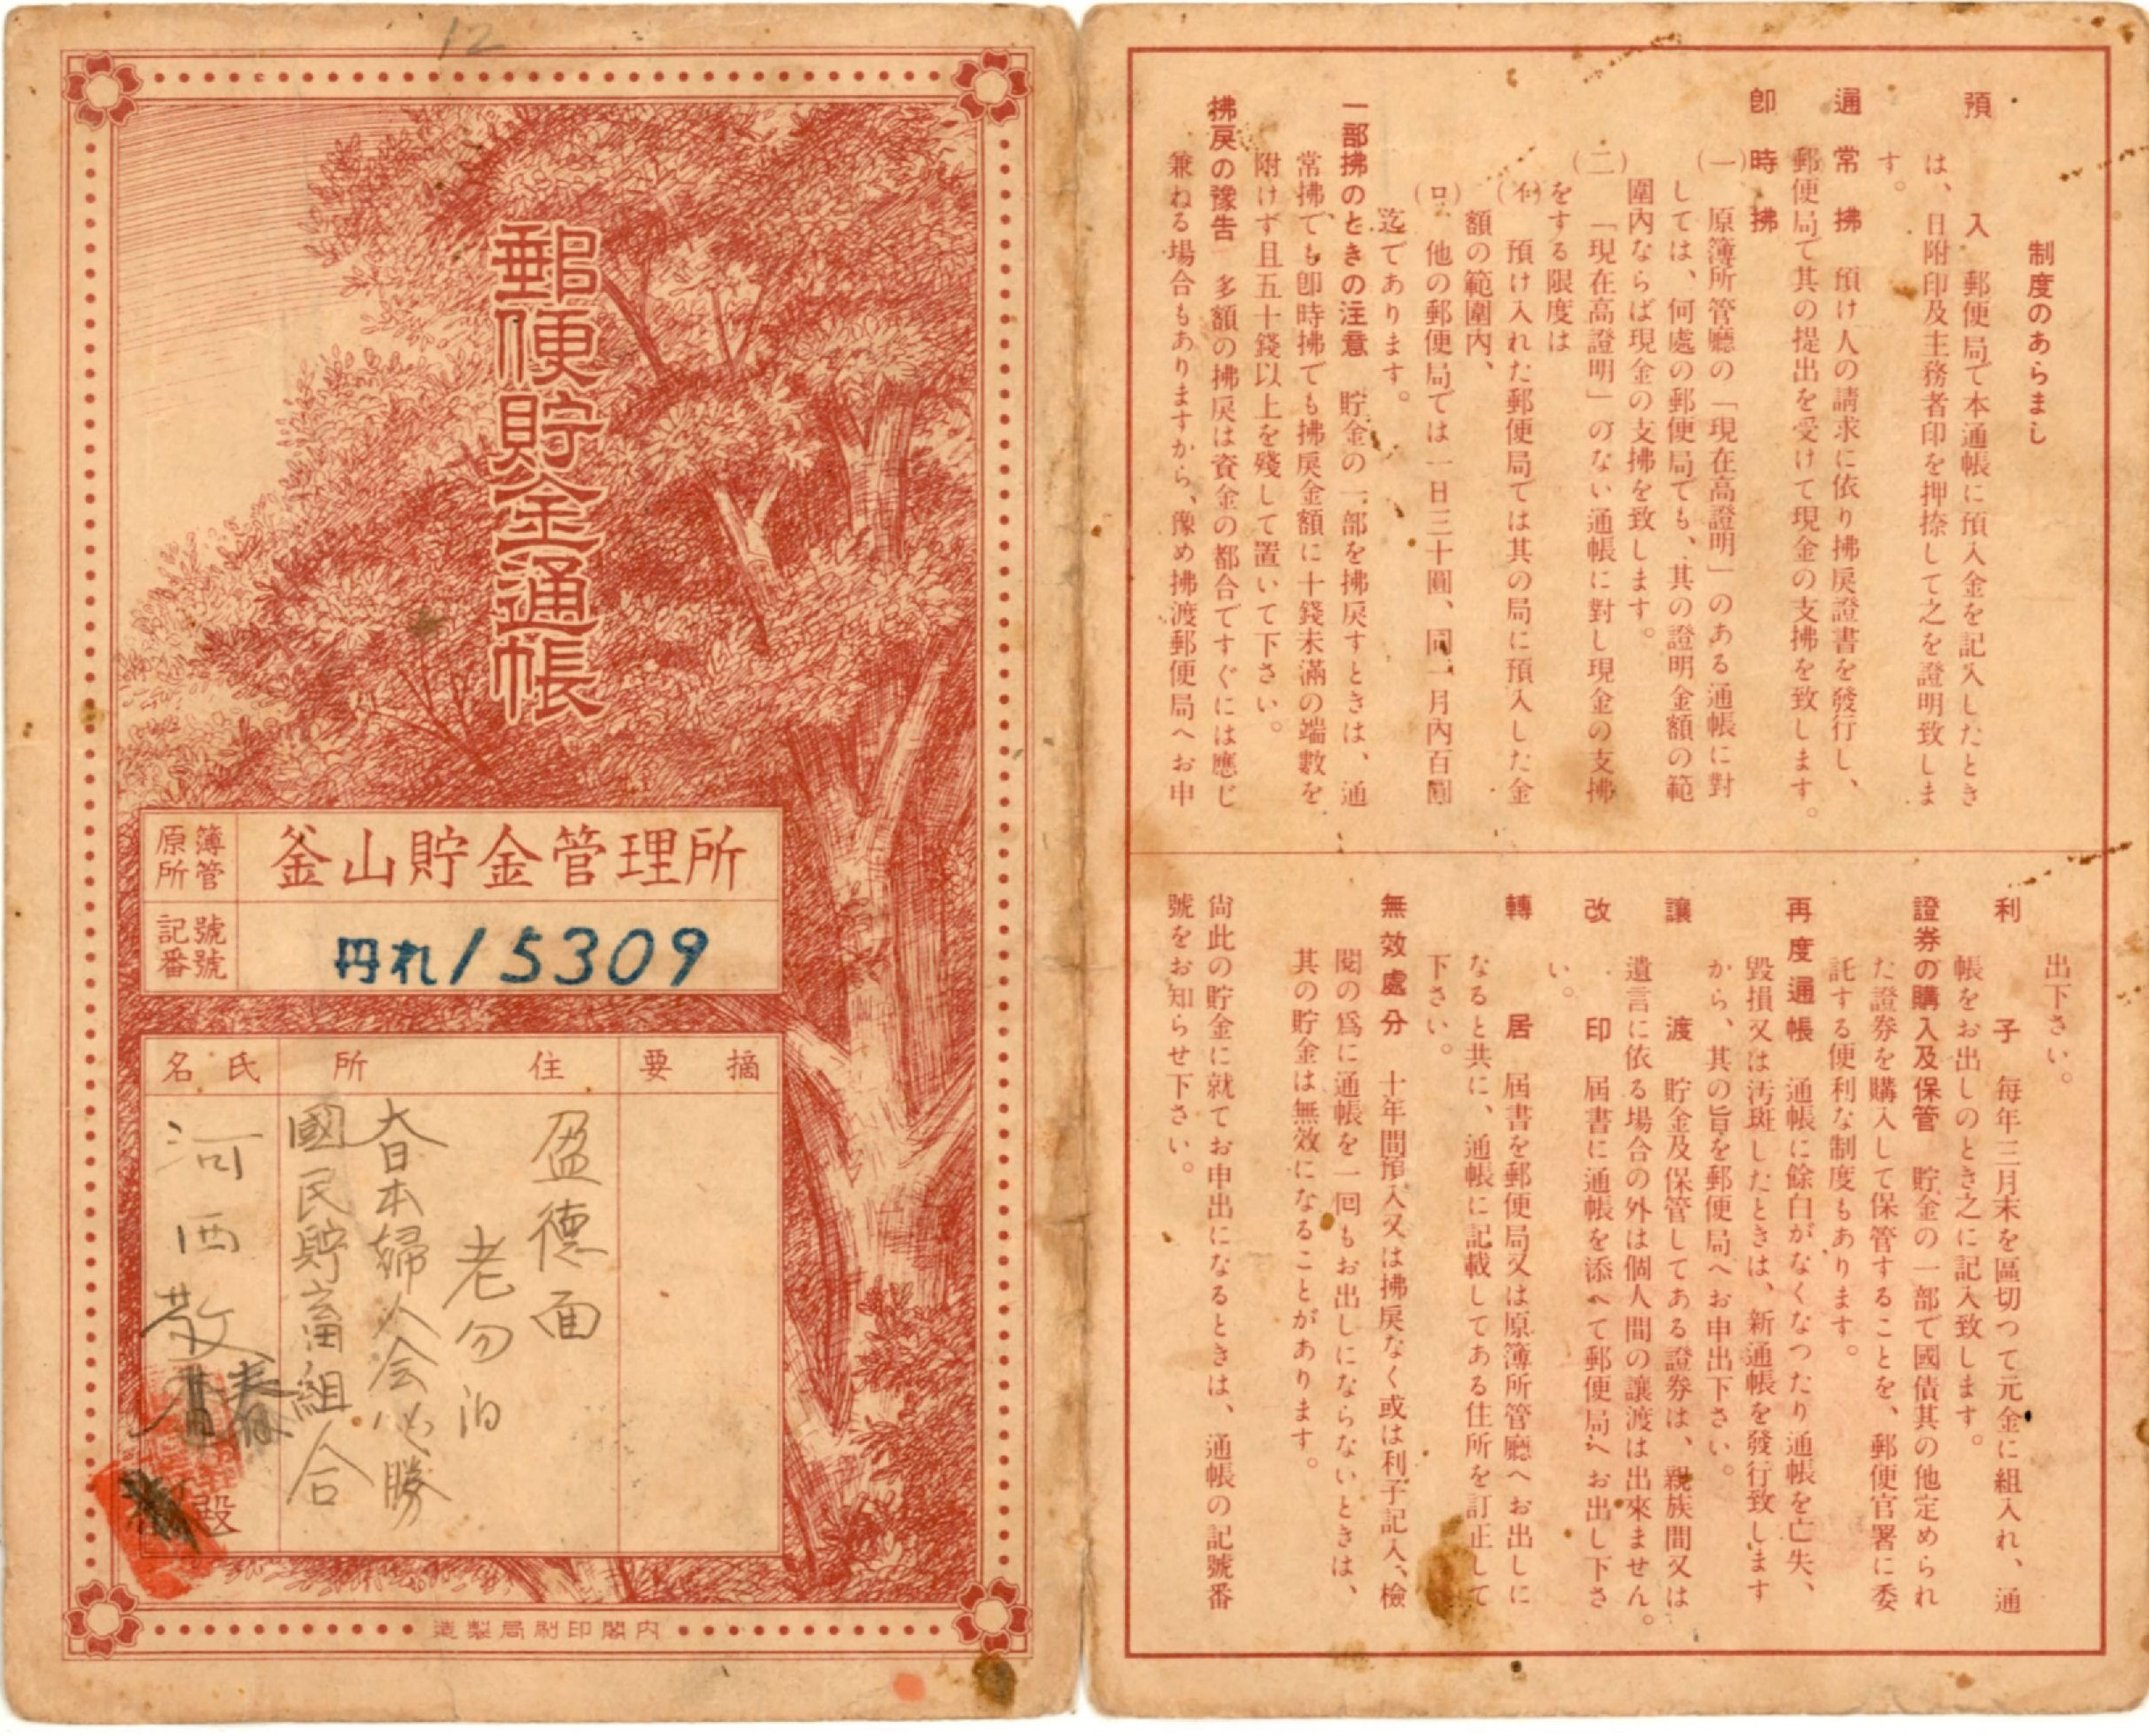 12
郵便貯金通帳
原簿所管
釜山貯金管理所
記號番號
丹れ15309
摘要
住所
氏名
盈德面
老勿洞
大日本婦人会必勝
國民貯畜組合
河西
春
殿
内閣印刷局製造
制度のあらまし
預入 郵便局で本通帳に預入金を記入したとき
は、日附印及主務者印を押捺して之を證明致しま
す。
通常拂 預け人の請求に依り拂戾證書を發行し、
郵便局で其の提出を受けて現金の支拂を致します。
卽時拂
(一) 原簿所管廳の「現在高證明」のある通帳に對
しては、何處の郵便局でも、其の證明金額の範
圍內ならば現金の支拂を致します。
(二) 「現在高證明」のない通帳に對し現金の支拂
をする限度は
(イ) 預け入れた郵便局では其の局に預入した金
額の範圍內、
(ロ) 他の郵便局では一日三十圓、同一月內百圓
迄であります。
一部拂のときの注意 貯金の一部を拂戾すときは、通
常拂でも卽時拂でも拂戾金額に十錢未滿の端數を
附けず且五十錢以上を殘して置いて下さい。
拂戾の豫告 多額の拂戾は資金の都合ですぐには應じ
兼ねる場合もありますから、豫め拂渡郵便局へお申
出下さい。
利子 每年三月末を區切つて元金に組入れ、通
帳をお出しのとき之に記入致します。
證券の購入及保管 貯金の一部で國債其の他定められ
た證券を購入して保管することを、郵便官署に委
託する便利な制度もあります。
再度通帳 通帳に餘白がなくなつたり通帳を亡失、
毀損又は汚斑したときは、新通帳を發行致します
から、其の旨を郵便局へお申出下さい。
讓渡 貯金及保管してある證券は、親族間又は
遺言に依る場合の外は個人間の讓渡は出來ません。
改印 屆書に通帳を添へて郵便局へお出し下さ
い。
轉居 屆書を郵便局又は原簿所管廳へお出しに
なると共に、通帳に記載してある住所を訂正して
下さい。
無效處分 十年間預入又は拂戾なく或は利子記入、檢
閱の爲に通帳を一回もお出しにならないときは、
其の貯金は無效になることがあります。
尙此の貯金に就てお申出になるときは、通帳の記號番
號をお知らせ下さい。